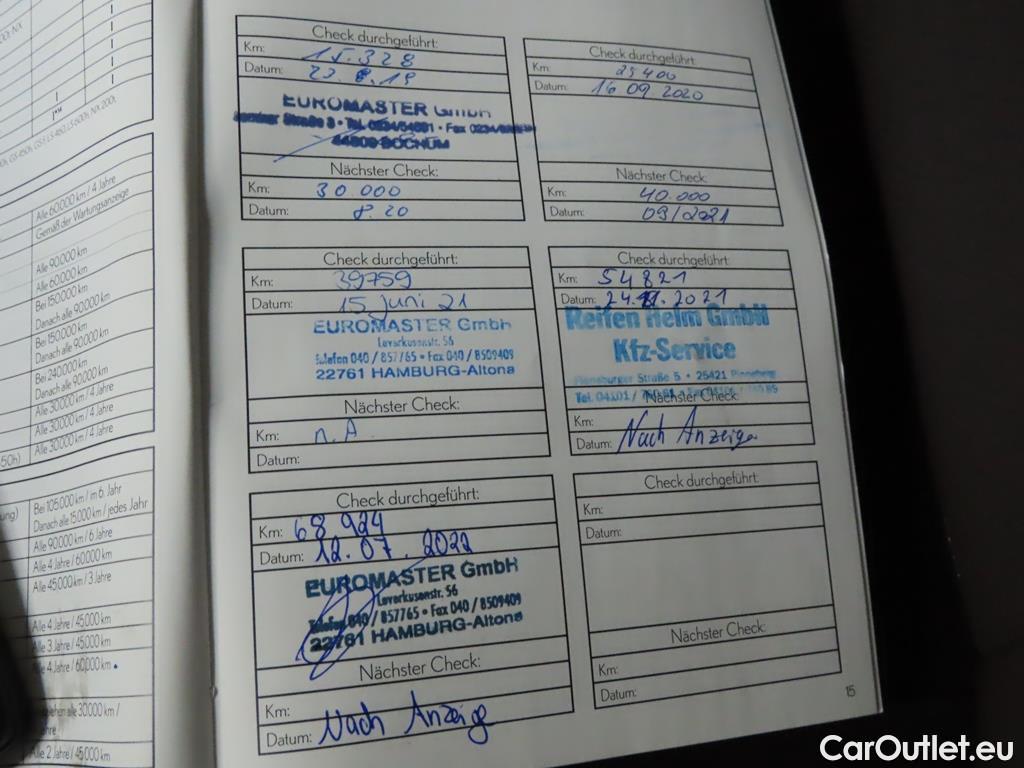 Check durchgeführt:
Km: 15.328
Datum:
EUROMASTER GmbH
44809 BOCHUM
Nächster Check:
Km: 30 000
Datum: 8.20
Check durchgeführt:
Km:
Datum: 16 09 2020
Nächster Check:
Km: 40.000
Datum: 09/2021
Check durchgeführt:
Km: 39759
Datum: 15 juni 21
EUROMASTER GmbH
Leverkusenstr. 56
Telefon 040 / 857765 • Fax 040 / 8509409
22761 HAMBURG-Altona
Nächster Check:
Km: n.A.
Datum:
Check durchgeführt:
Km: 54821
Datum: 24.11.2021
Reifen Helm GmbH
Kfz-Service
Straße 5 • 25421 Pinneberg
Tel. 04101 /
Nächster Check:
Km:
Datum: Nach Anzeige
Check durchgeführt:
Km: 68 924
Datum: 12.07.2022
EUROMASTER GmbH
Leverkusenstr. 56
Telefon 040 / 857765 • Fax 040 / 8509409
22761 HAMBURG-Altona
Nächster Check:
Km:
Datum: Nach Anzeige
Check durchgeführt:
Km:
Datum:
Nächster Check:
Km:
Datum:
15
Alle 60.000 km / 4 Jahre
Gemäß der Wartungsanzeige
Alle 90.000 km
Alle 60.000 km
Bei 150.000 km
Danach alle 90.000 km
Bei 150.000 km
Danach alle 90.000 km
Bei 240.000 km
Danach alle 90.000 km
Alle 30.000 km / 4 Jahre
Alle 30.000 km / 4 Jahre
Alle 30.000 km / 4 Jahre
Bei 105.000 km / im 6. Jahr
Danach alle 15.000 km / jedes Jahr
Alle 90.000 km / 6 Jahre
Alle 4 Jahre / 60.000 km
Alle 45.000 km / 3 Jahre
Alle 4 Jahre / 45.000 km
Alle 3 Jahre / 45.000 km
Alle 4 Jahre / 60.000 km
alle 30.000 km /
Alle 2 Jahre / 45.000 km
CarOutlet.eu